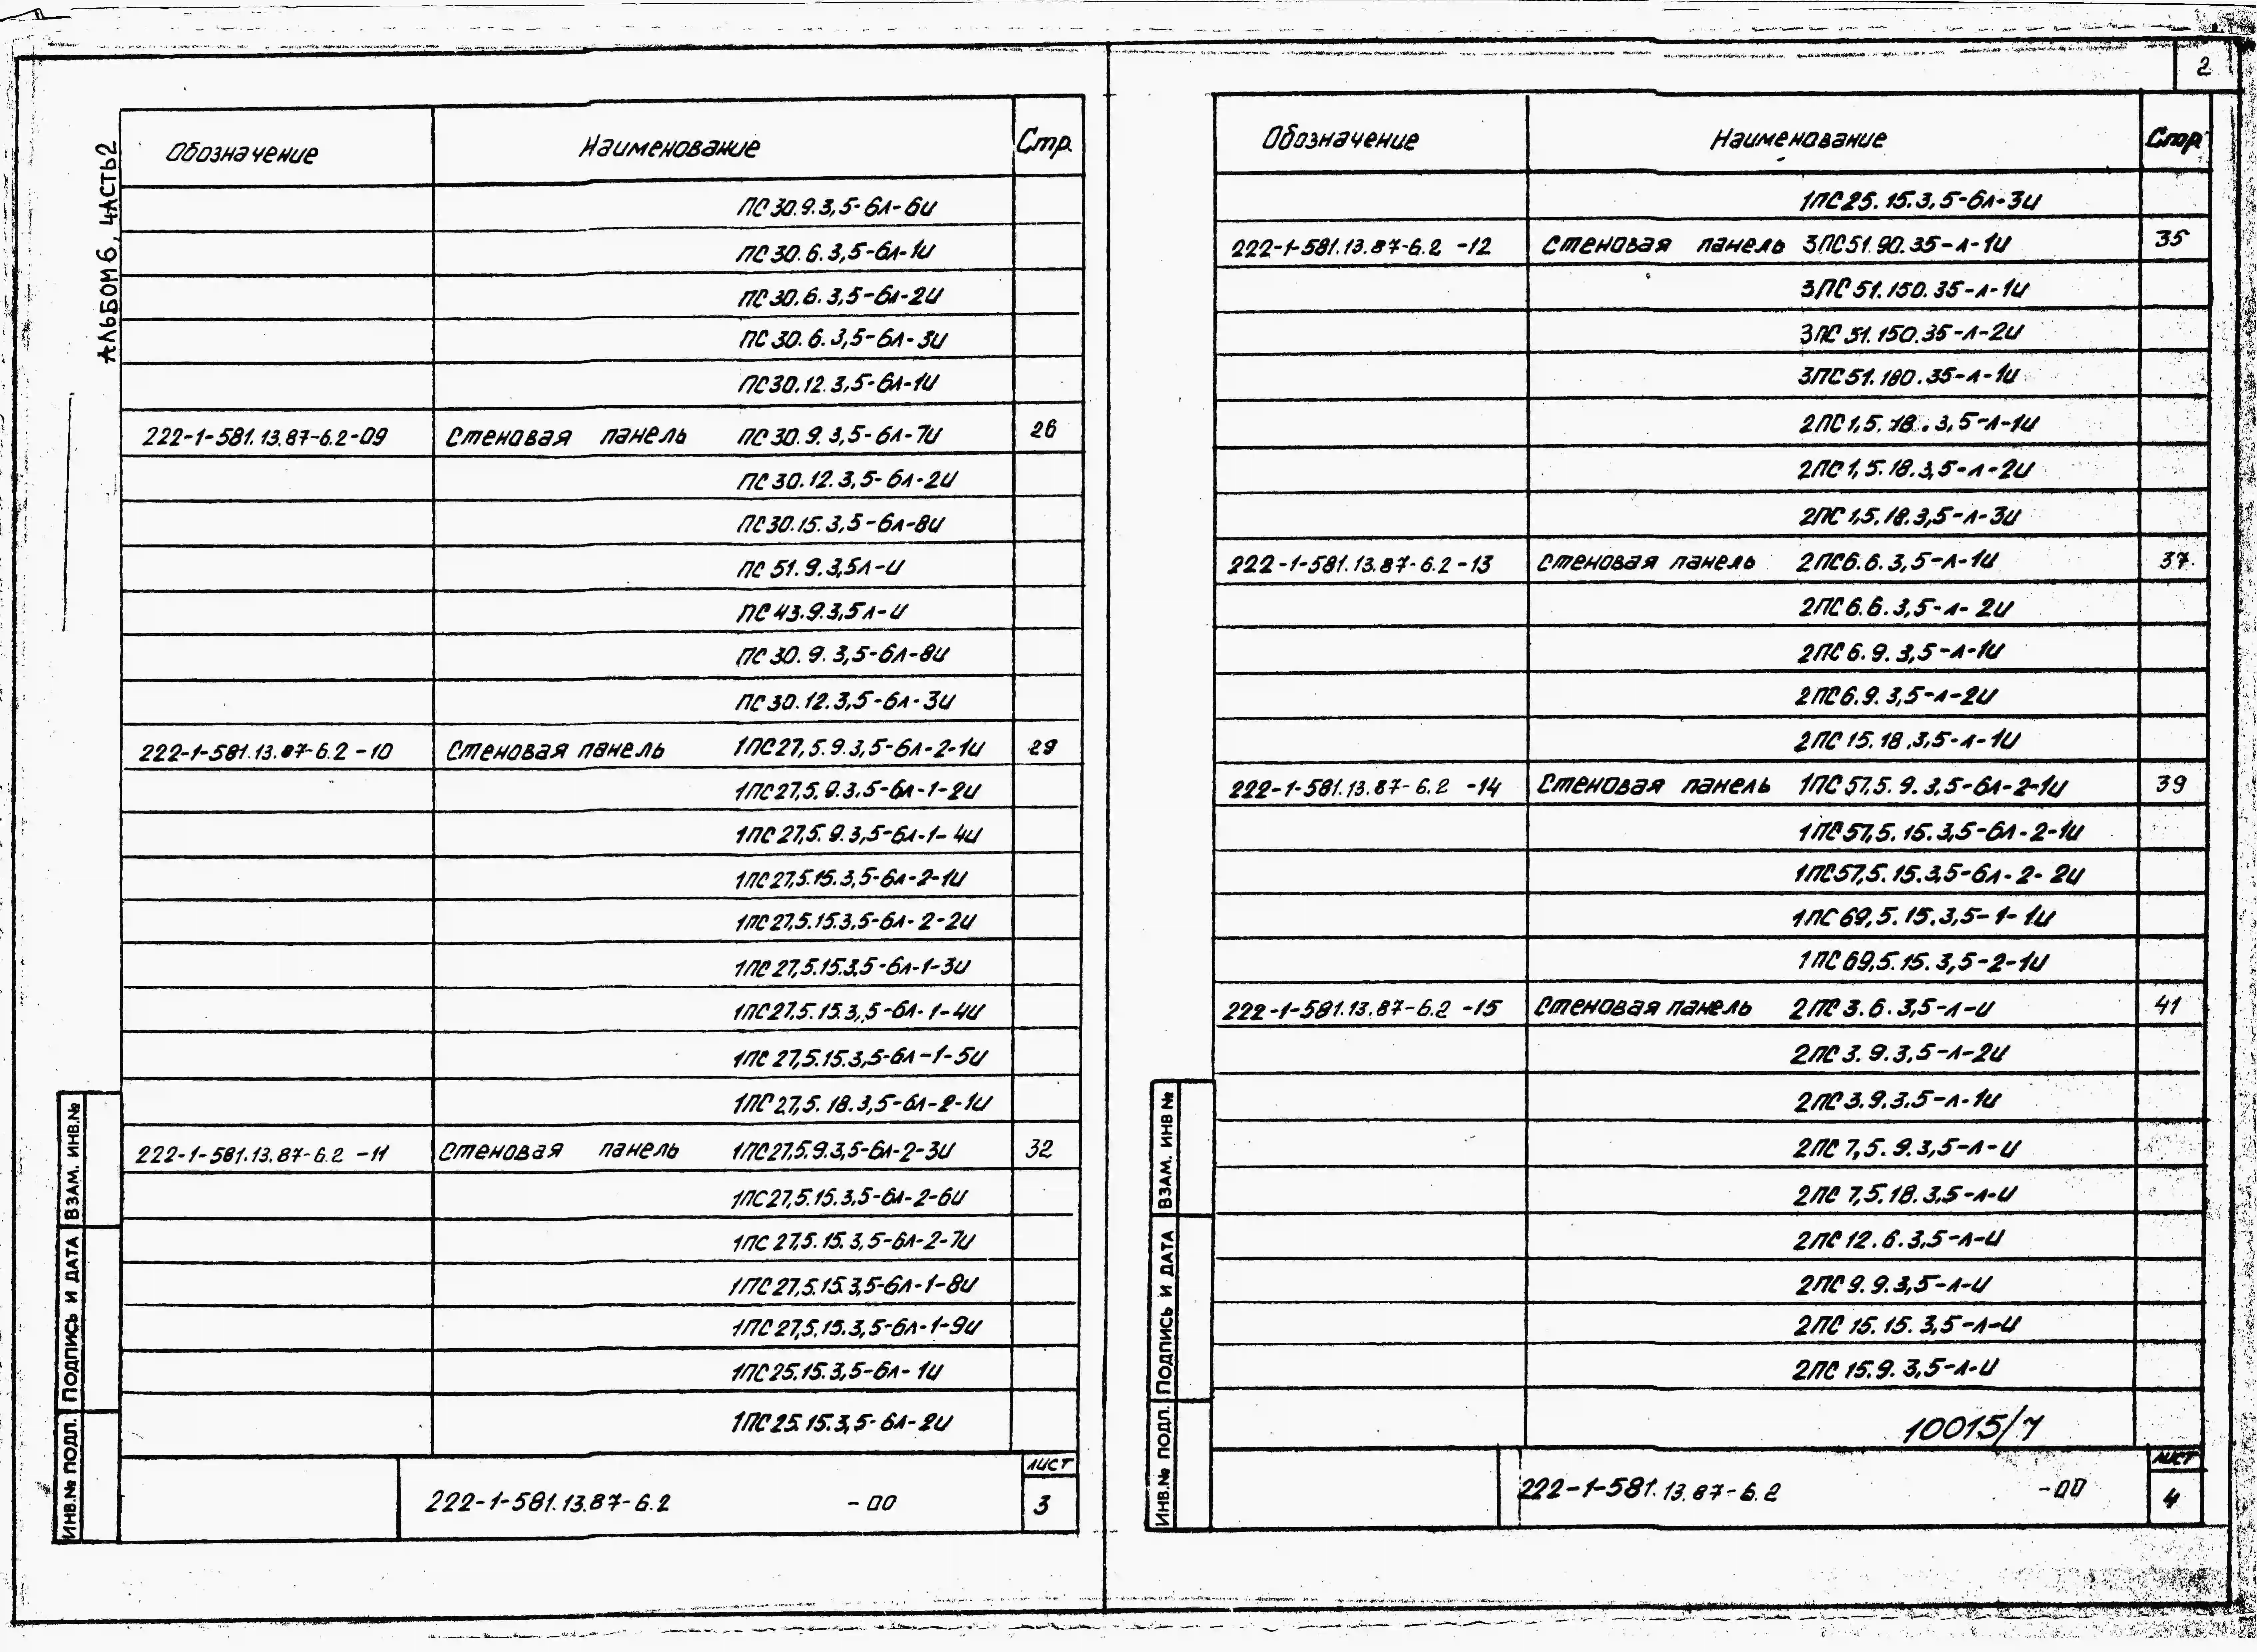 2
АЛЬБОМ 6, ЧАСТЬ 2
Обозначение Наименование Стр.
ПС 30.9.3,5-6л-6и
ПС 30.6.3,5-6л-1и
ПС 30.6.3,5-6л-2и
ПС 30.6.3,5-6л-3и
ПС30.12.3,5-6л-1и
222-1-581.13.87-6.2-09 Стеновая панель ПС 30.9.3,5-6л-7и 26
ПС 30.12.3,5-6л-2и
ПС30.15.3,5-6л-8и
ПС 51.9.3,5л-и
ПС 43.9.3,5л-и
ПС 30.9.3,5-6л-8и
ПС 30.12.3,5-6л-3и
222-1-581.13.87-6.2-10 Стеновая панель 1ПС27,5.9.3,5-6л-2-1и 29
1ПС27,5.9.3,5-6л-1-2и
1ПС27,5.9.3,5-6л-1-4и
1ПС27,5.15.3,5-6л-2-1и
1ПС27,5.15.3,5-6л-2-2и
1ПС27,5.15.3,5-6л-1-3и
1ПС27,5.15.3,5-6л-1-4и
1ПС 27,5.15.3,5-6л-1-5и
1ПС27,5.18.3,5-6л-2-1и
222-1-581.13.87-6.2-11 Стеновая панель 1ПС27,5.9.3,5-6л-2-3и 32
1ПС27,5.15.3,5-6л-2-6и
1ПС 27,5.15.3,5-6л-2-7и
1ПС27,5.15.3,5-6л-1-8и
1ПС27,5.15.3,5-6л-1-9и
1ПС25.15.3,5-6л-1и
1ПС25.15.3,5-6л-2и
ИНВ.№ ПОДЛ. ПОДПИСЬ И ДАТА ВЗАМ. ИНВ.№
222-1-581.13.87-6.2 -00
ЛИСТ
3
Обозначение Наименование Стр
1ПС25.15.3,5-6л-3и
222-1-581.13.87-6.2-12 Стеновая панель 3ПС51.90.35-л-1и 35
3ПС 51.150.35-л-1и
3ПС 51.150.35-л-2и
3ПС51.180.35-л-1и
2ПС1,5.18.3,5-л-1и
2ПС1,5.18.3,5-л-2и
2ПС 1,5.18.3,5-л-3и
222-1-581.13.87-6.2-13 Стеновая панель 2ПС6.6.3,5-л-1и 37
2ПС6.6.3,5-л-2и
2ПС6.9.3,5-л-1и
2ПС6.9.3,5-л-2и
2ПС 15.18.3,5-л-1и
222-1-581.13.87-6.2-14 Стеновая панель 1ПС57,5.9.3,5-6л-2-1и 39
1ПС57,5.15.3,5-6л-2-1и
1ПС57,5.15.3,5-6л-2-2и
1ПС 69,5.15.3,5-1-1и
1ПС69,5.15.3,5-2-1и
222-1-581.13.87-6.2-15 Стеновая панель 2ПС3.6.3,5-л-и 41
2ПС 3.9.3,5-л-2и
2ПС3.9.3.5-л-1и
2ПС 7,5.9.3,5-л-и
2ПС 7,5.18.3,5-л-и
2ПС 12.6.3,5-л-и
2ПС 9.9.3,5-л-и
2ПС 15.15.3,5-л-и
2ПС 15.9.3,5-л-и
10015/7
ИНВ.№ ПОДЛ. ПОДПИСЬ И ДАТА ВЗАМ. ИНВ №
222-1-581.13.87-6.2 -00
ЛИСТ
4